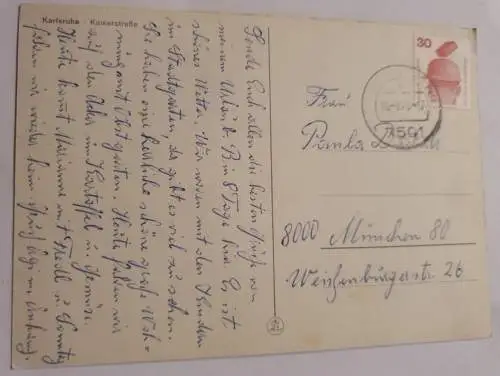 Karlsruhe - Kaiserstraße
Sende Euch allen die besten Grüße von
meinem Urlaub. Bin 8 Tage hier. Es ist
schönes Wetter. Wir waren mit den Kindern
im Stadtgarten, da gibt es viel zu sehen.
Sie haben eine schöne große Woh-
nung mit Obstgarten. Heute haben wir
auf den Acker in Kartoffel u. Gemüse.
Heute kommt Marianne mit u. Sonntag
fahren wir wieder heim
30
7501
Frau
Paula
8000 München 80
Weißenburgerstr 26